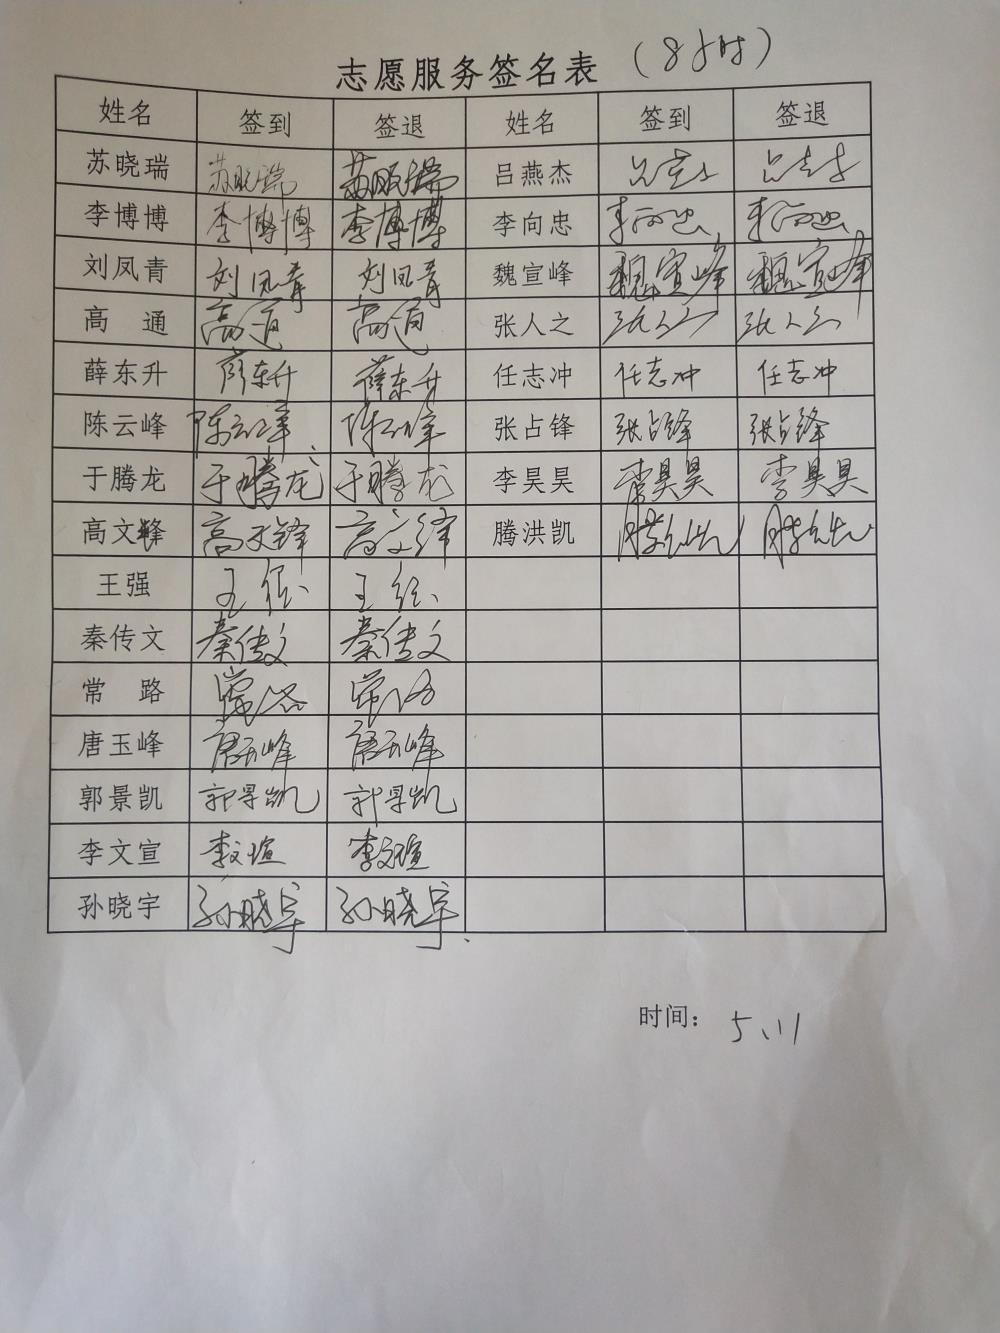 志愿服务签名表 (8小时)
姓名 签到 签退 姓名 签到 签退
苏晓瑞 苏晓瑞 苏晓瑞 吕燕杰
李博博 李博博 李博博 李向忠 李向忠 李向忠
刘凤青 刘凤青 刘凤青 魏宣峰 魏宣峰 魏宣峰
高 通 高通 高通 张人之 张人之 张人之
薛东升 薛东升 薛东升 任志冲 任志冲 任志冲
陈云峰 陈云峰 陈云峰 张占锋 张占锋 张占锋
于腾龙 于腾龙 于腾龙 李昊昊 李昊昊 李昊昊
高文锋 高文锋 高文锋 腾洪凯
王强 王强 王强
秦传文 秦传文 秦传文
常 路 常路 常路
唐玉峰 唐玉峰 唐玉峰
郭景凯 郭景凯 郭景凯
李文宣 李文瑄 李文瑄
孙晓宇 孙晓宇 孙晓宇
时间： 5、11